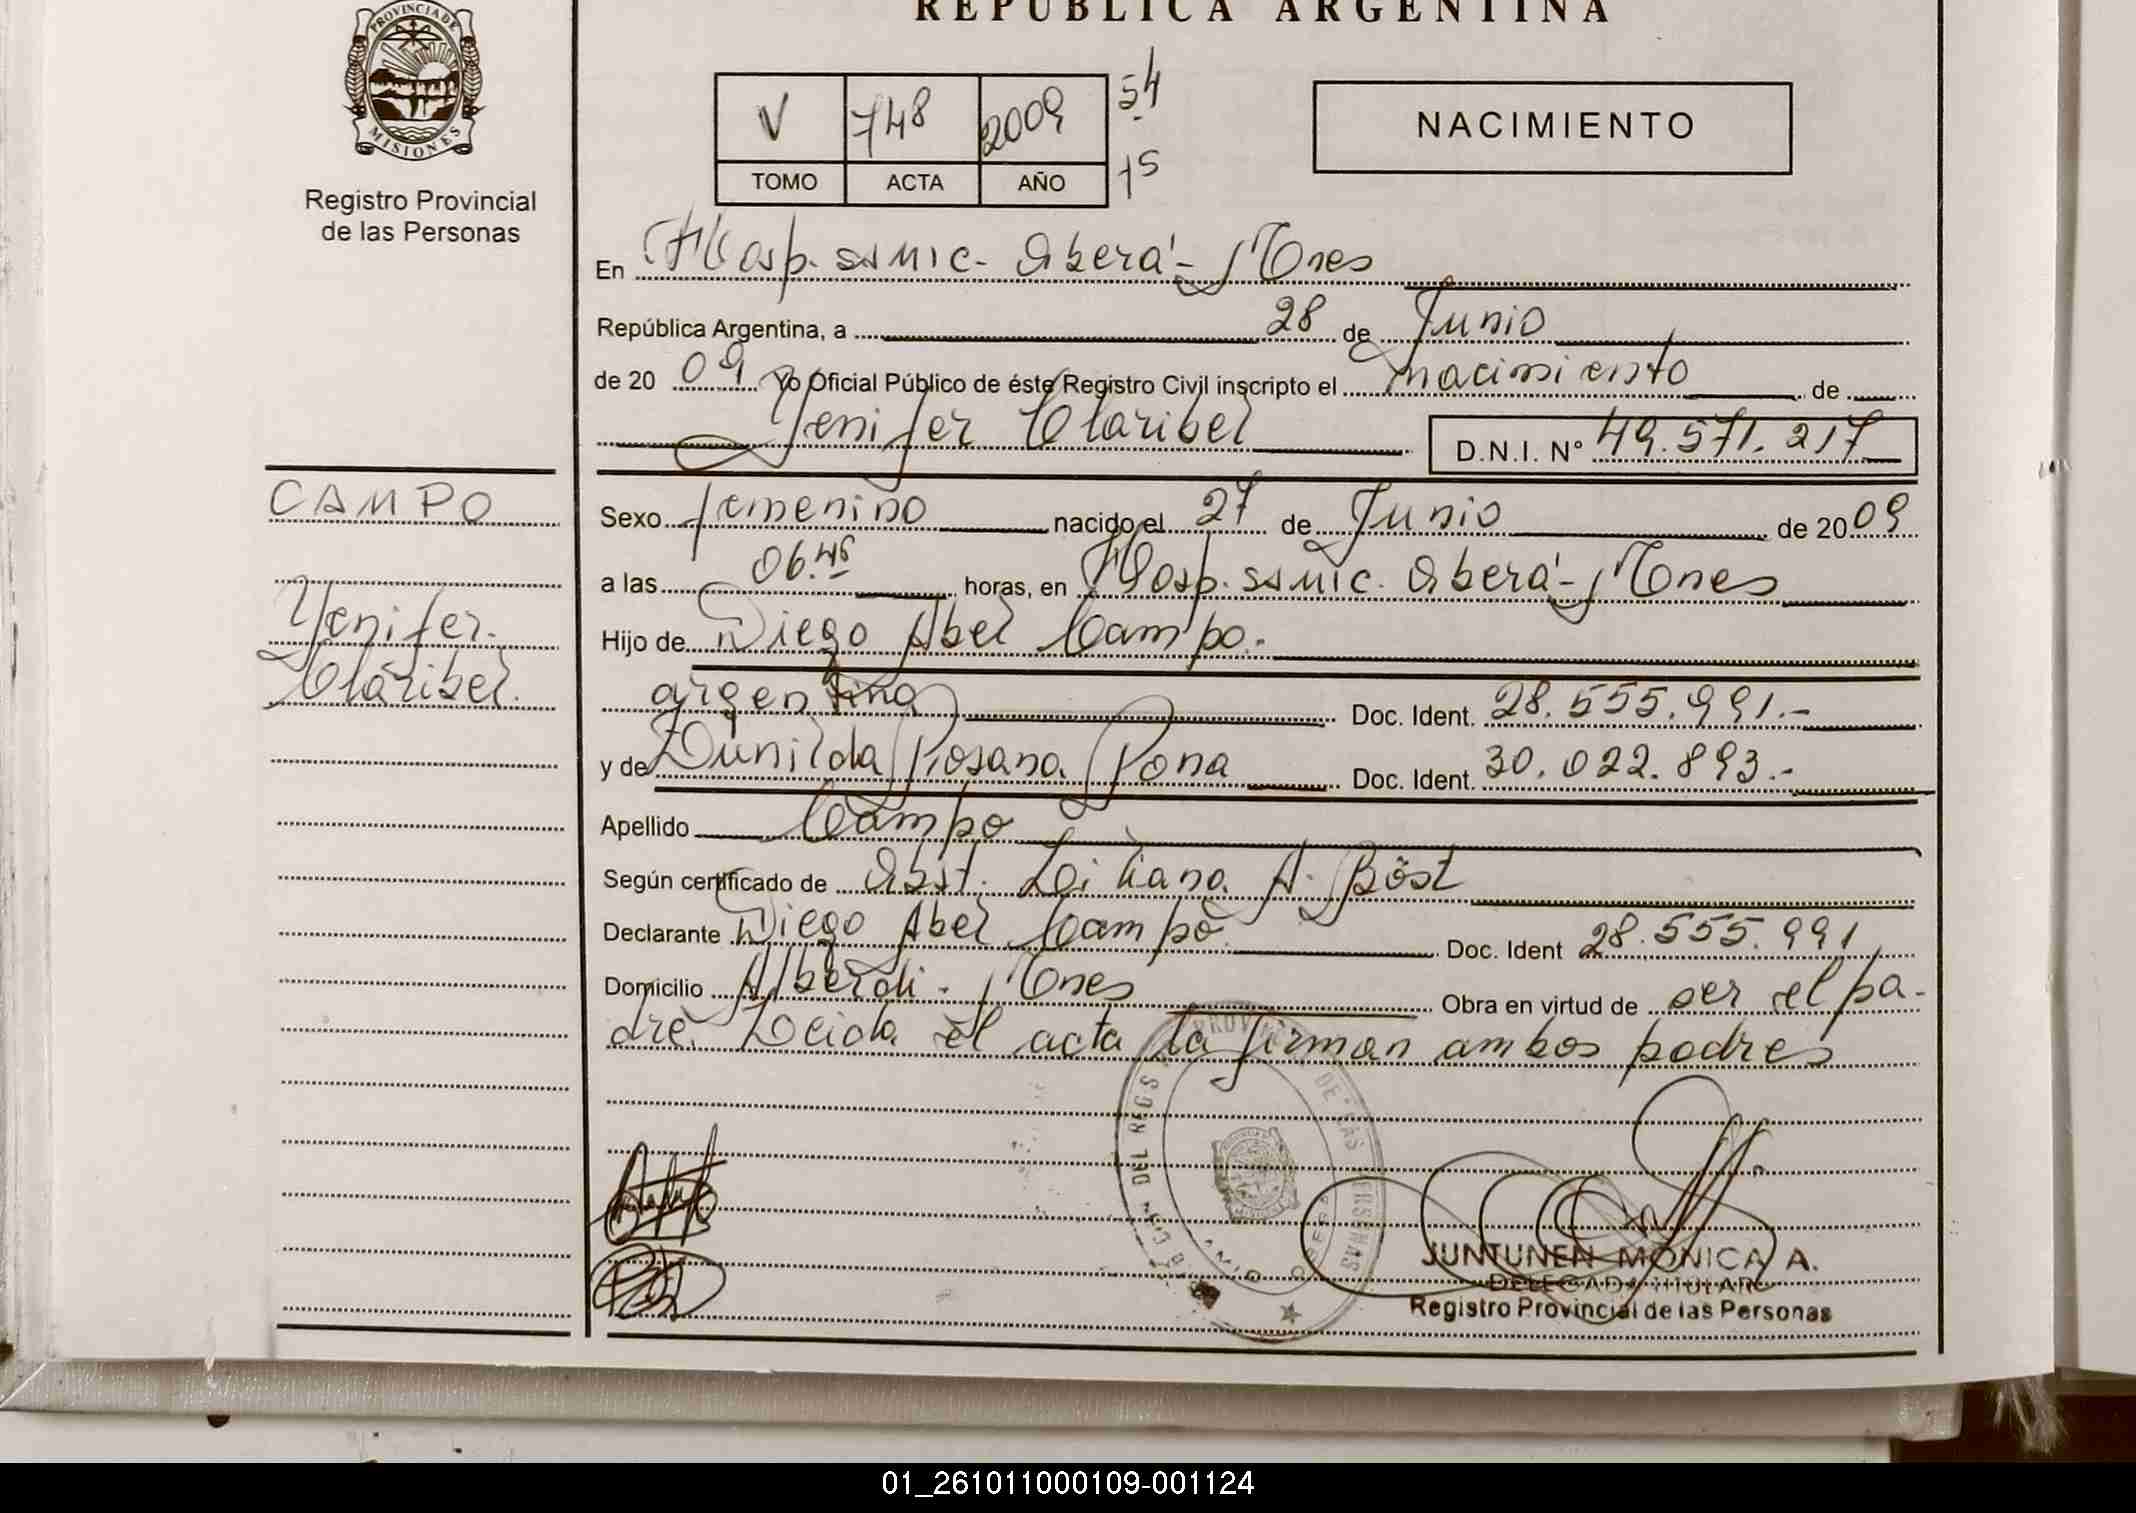 REPUBLICA ARGENTINA
PROVINCIA DE
MISIONES
Registro Provincial
de las Personas
V 748 2009 54
TOMO ACTA AÑO 15
NACIMIENTO
En Hosp. SAMIC - Oberá - Mnes
República Argentina, a 28 de Junio
de 20 09 Yo Oficial Público de éste Registro Civil inscripto el nacimiento de
Yenifer Claribel D.N.I. Nº 49.571.217
CAMPO
Yenifer
Claribel.
Sexo femenino nacido el 27 de Junio de 20 09
a las 06.45 horas, en Hosp. SAMIC. Oberá - Mnes
Hijo de Diego Abel Campo.
argentina Doc. Ident. 28.555.991.-
y de Dunilda Rosana Pona Doc. Ident. 30.022.893.-
Apellido Campo
Según certificado de Obst. Liliana A. Bóst
Declarante Diego Abel Campo Doc. Ident 28.555.991
Domicilio Alberdi - Mnes Obra en virtud de ser el pa-
dre. Leida el acta la firman ambos padres
DEL REGISTRO PROVINCIAL DE LAS PERSONAS
JUNTUNEN MONICA A.
DELEGADA TITULAR
Registro Provincial de las Personas
01_261011000109-001124